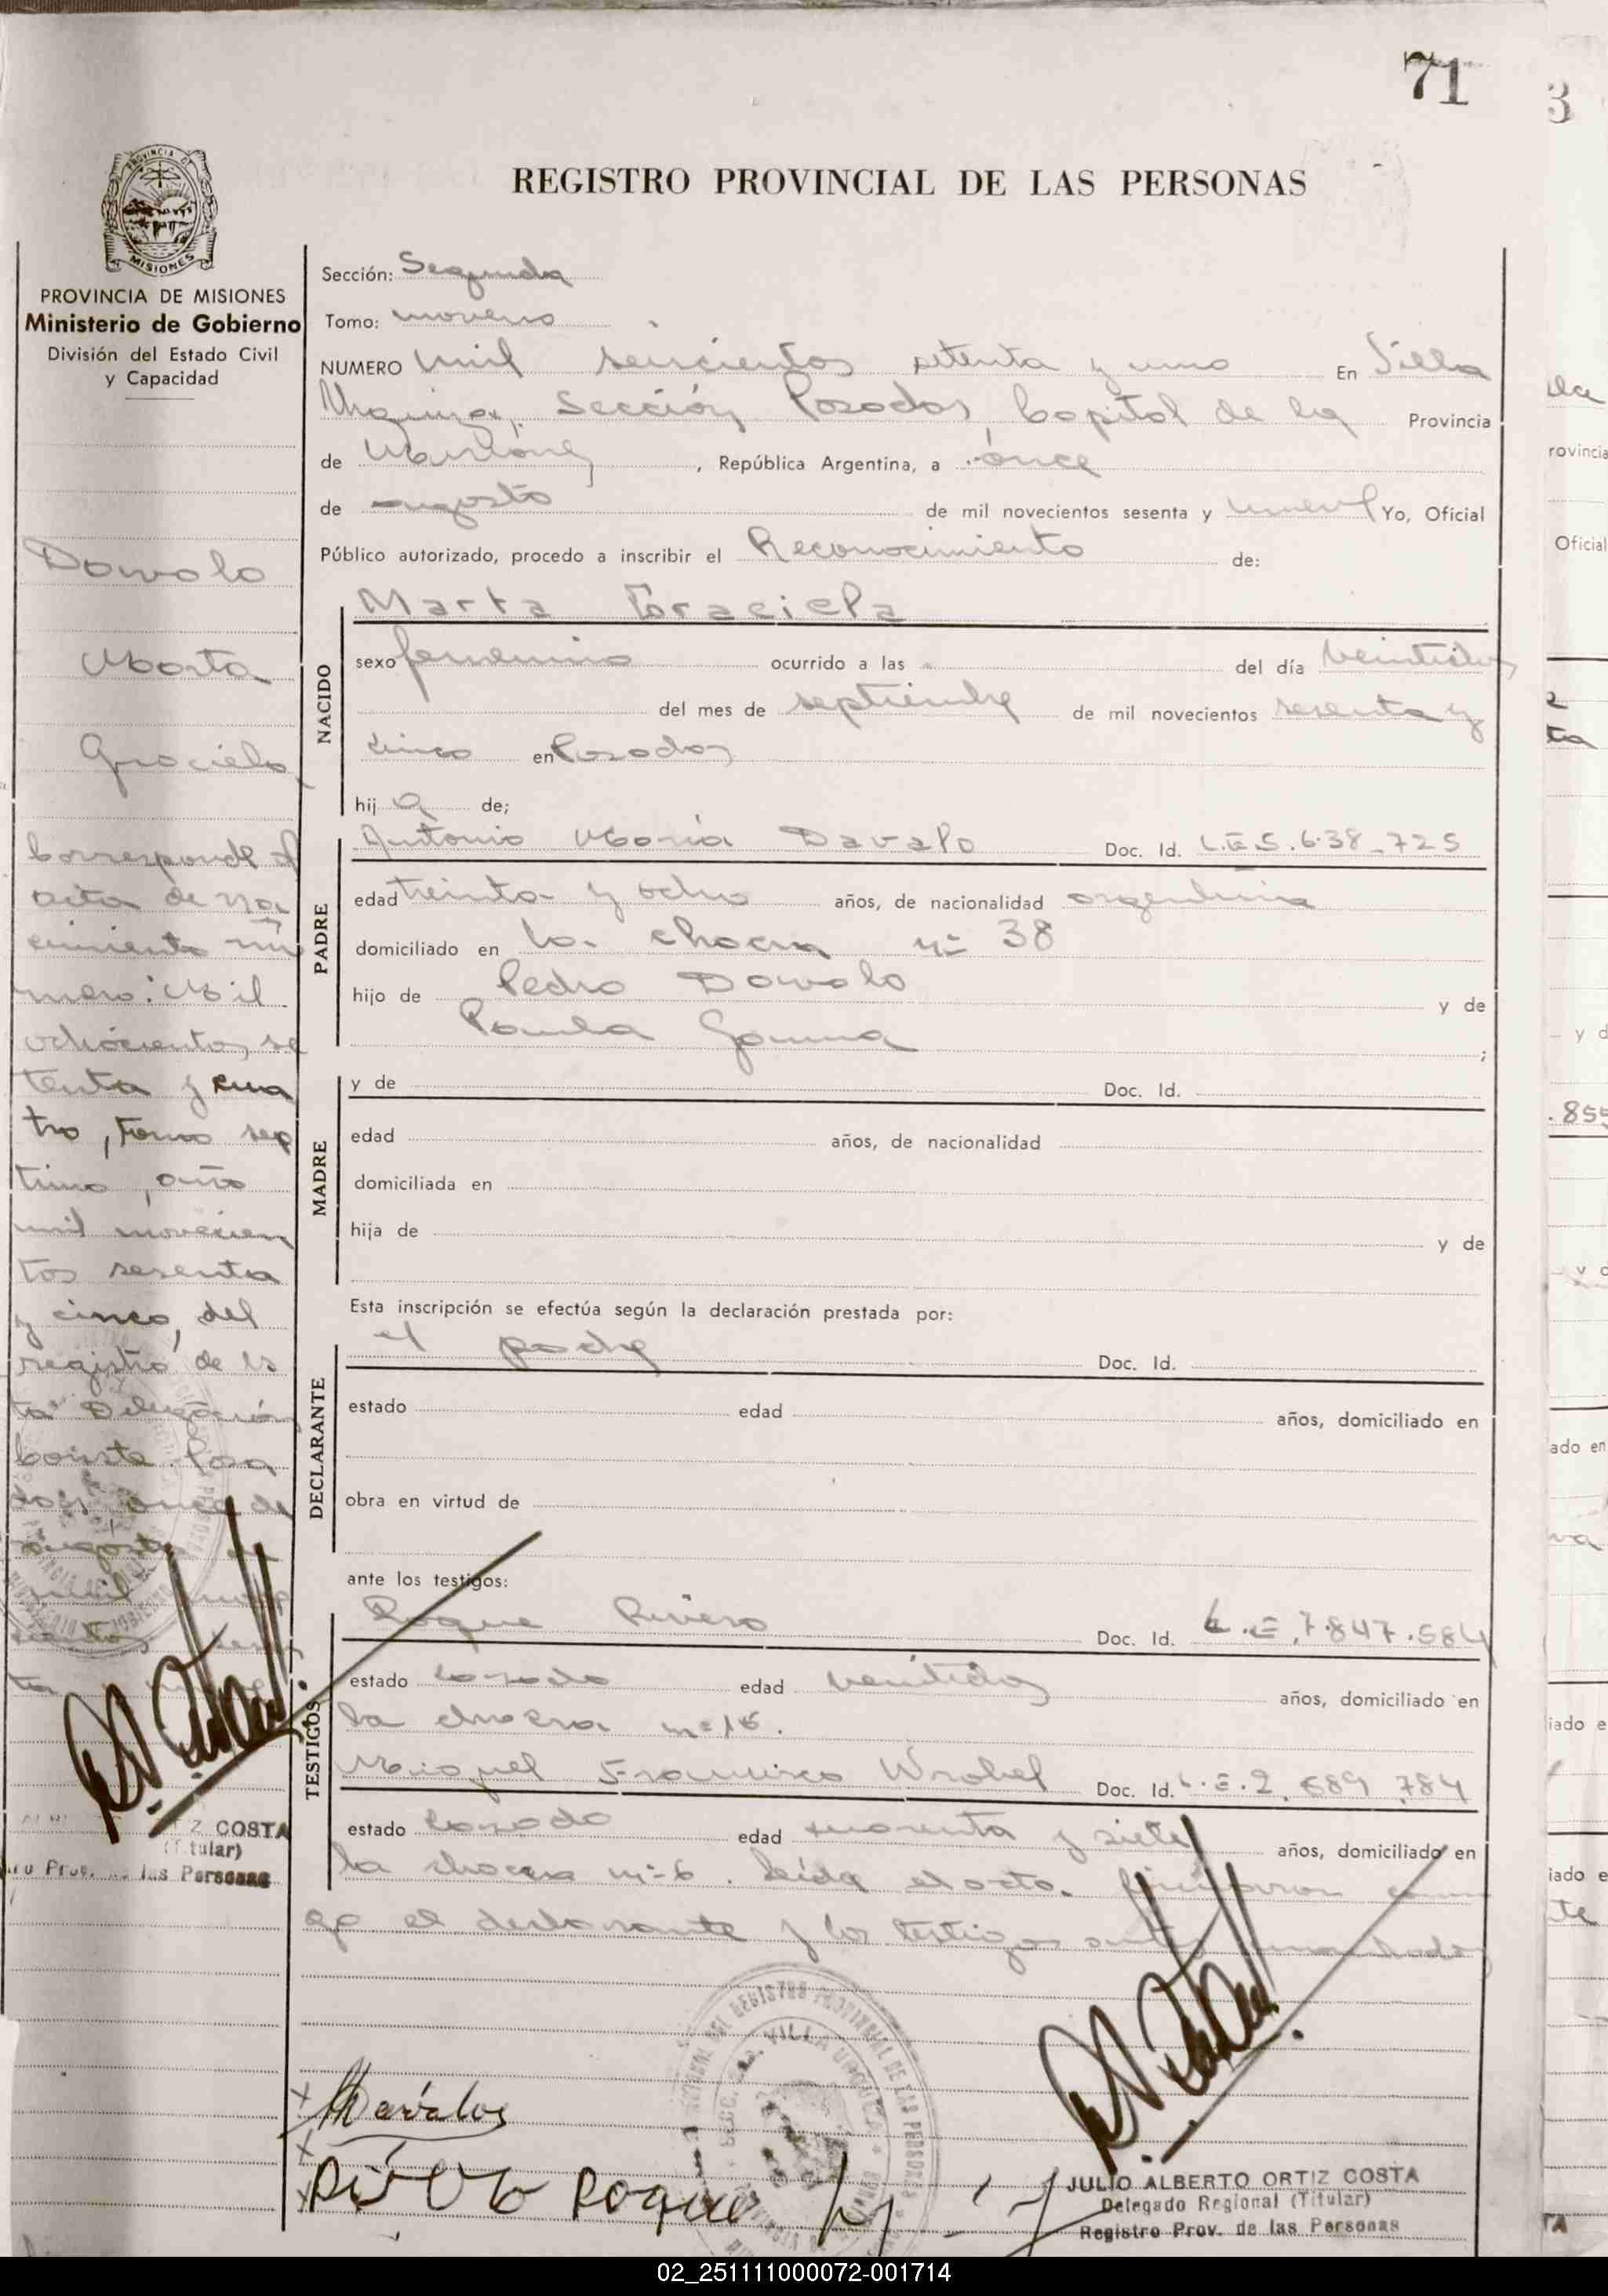 71
REGISTRO PROVINCIAL DE LAS PERSONAS
PROVINCIA DE MISIONES
PROVINCIA DE MISIONES
Ministerio de Gobierno
División del Estado Civil
y Capacidad
Davalo
Marta
Graciela
Corresponde al
acta de na
cimiento nú
mero: Mil
ochocientos se
tenta y cua
tro, tomo sep
timo, año
mil novecien
tos sesenta
y cinco, del
registro de es
ta Delegación
Conste. Posa
das, once de
agosto de
mil nove
cientos sesen
ta y
Z COSTA
(Titular)
las Personas
Sección: Segunda
Tomo: noveno
NUMERO Mil seiscientos setenta y uno En Villa
Urquiza, Sección Posadas Capital de la Provincia
de Misiones, República Argentina, a once
de agosto de mil novecientos sesenta y nueve Yo, Oficial
Público autorizado, procedo a inscribir el Reconocimiento de:
NACIDO
Marta Graciela
sexo femenino ocurrido a las del día veintidos
del mes de septiembre de mil novecientos sesenta y
cinco en Posadas
hij a de;
PADRE
Antonio María Davalo Doc. Id. L.E 5.638.725
edad treinta y ocho años, de nacionalidad argentina
domiciliado en la chacra nº 38
hijo de Pedro Davalo y de
Paula
MADRE
y de Doc. Id.
edad años, de nacionalidad
domiciliada en
hija de y de
Esta inscripción se efectúa según la declaración prestada por:
DECLARANTE
el padre Doc. Id.
estado edad años, domiciliado en
obra en virtud de
ante los testigos:
TESTIGOS
Roque Rivero Doc. Id. L.E. 7.847.584
estado casado edad veintidos años, domiciliado en
la chacra nº 16.
Miguel Francisco Wrobel Doc. Id. L.E. 2.689.784
estado casado edad cuarenta y siete años, domiciliado en
la chacra nº 6. Leída el acta. firmaron conmi
go el declarante y los testigos antes mencionados
Davalos
Roque
JULIO ALBERTO ORTIZ COSTA
Delegado Regional (Titular)
Registro Prov. de las Personas
02_251111000072-001714